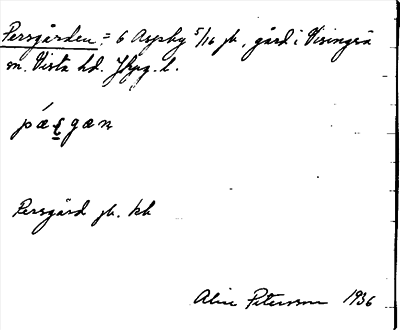 Persgården = 6 Aspby 5/16 jb, gård i Visingsö
sn. Vista hd. Jkpg. l.
pæʂgæn
Persgård jb. kb
Aline Peterson 1936